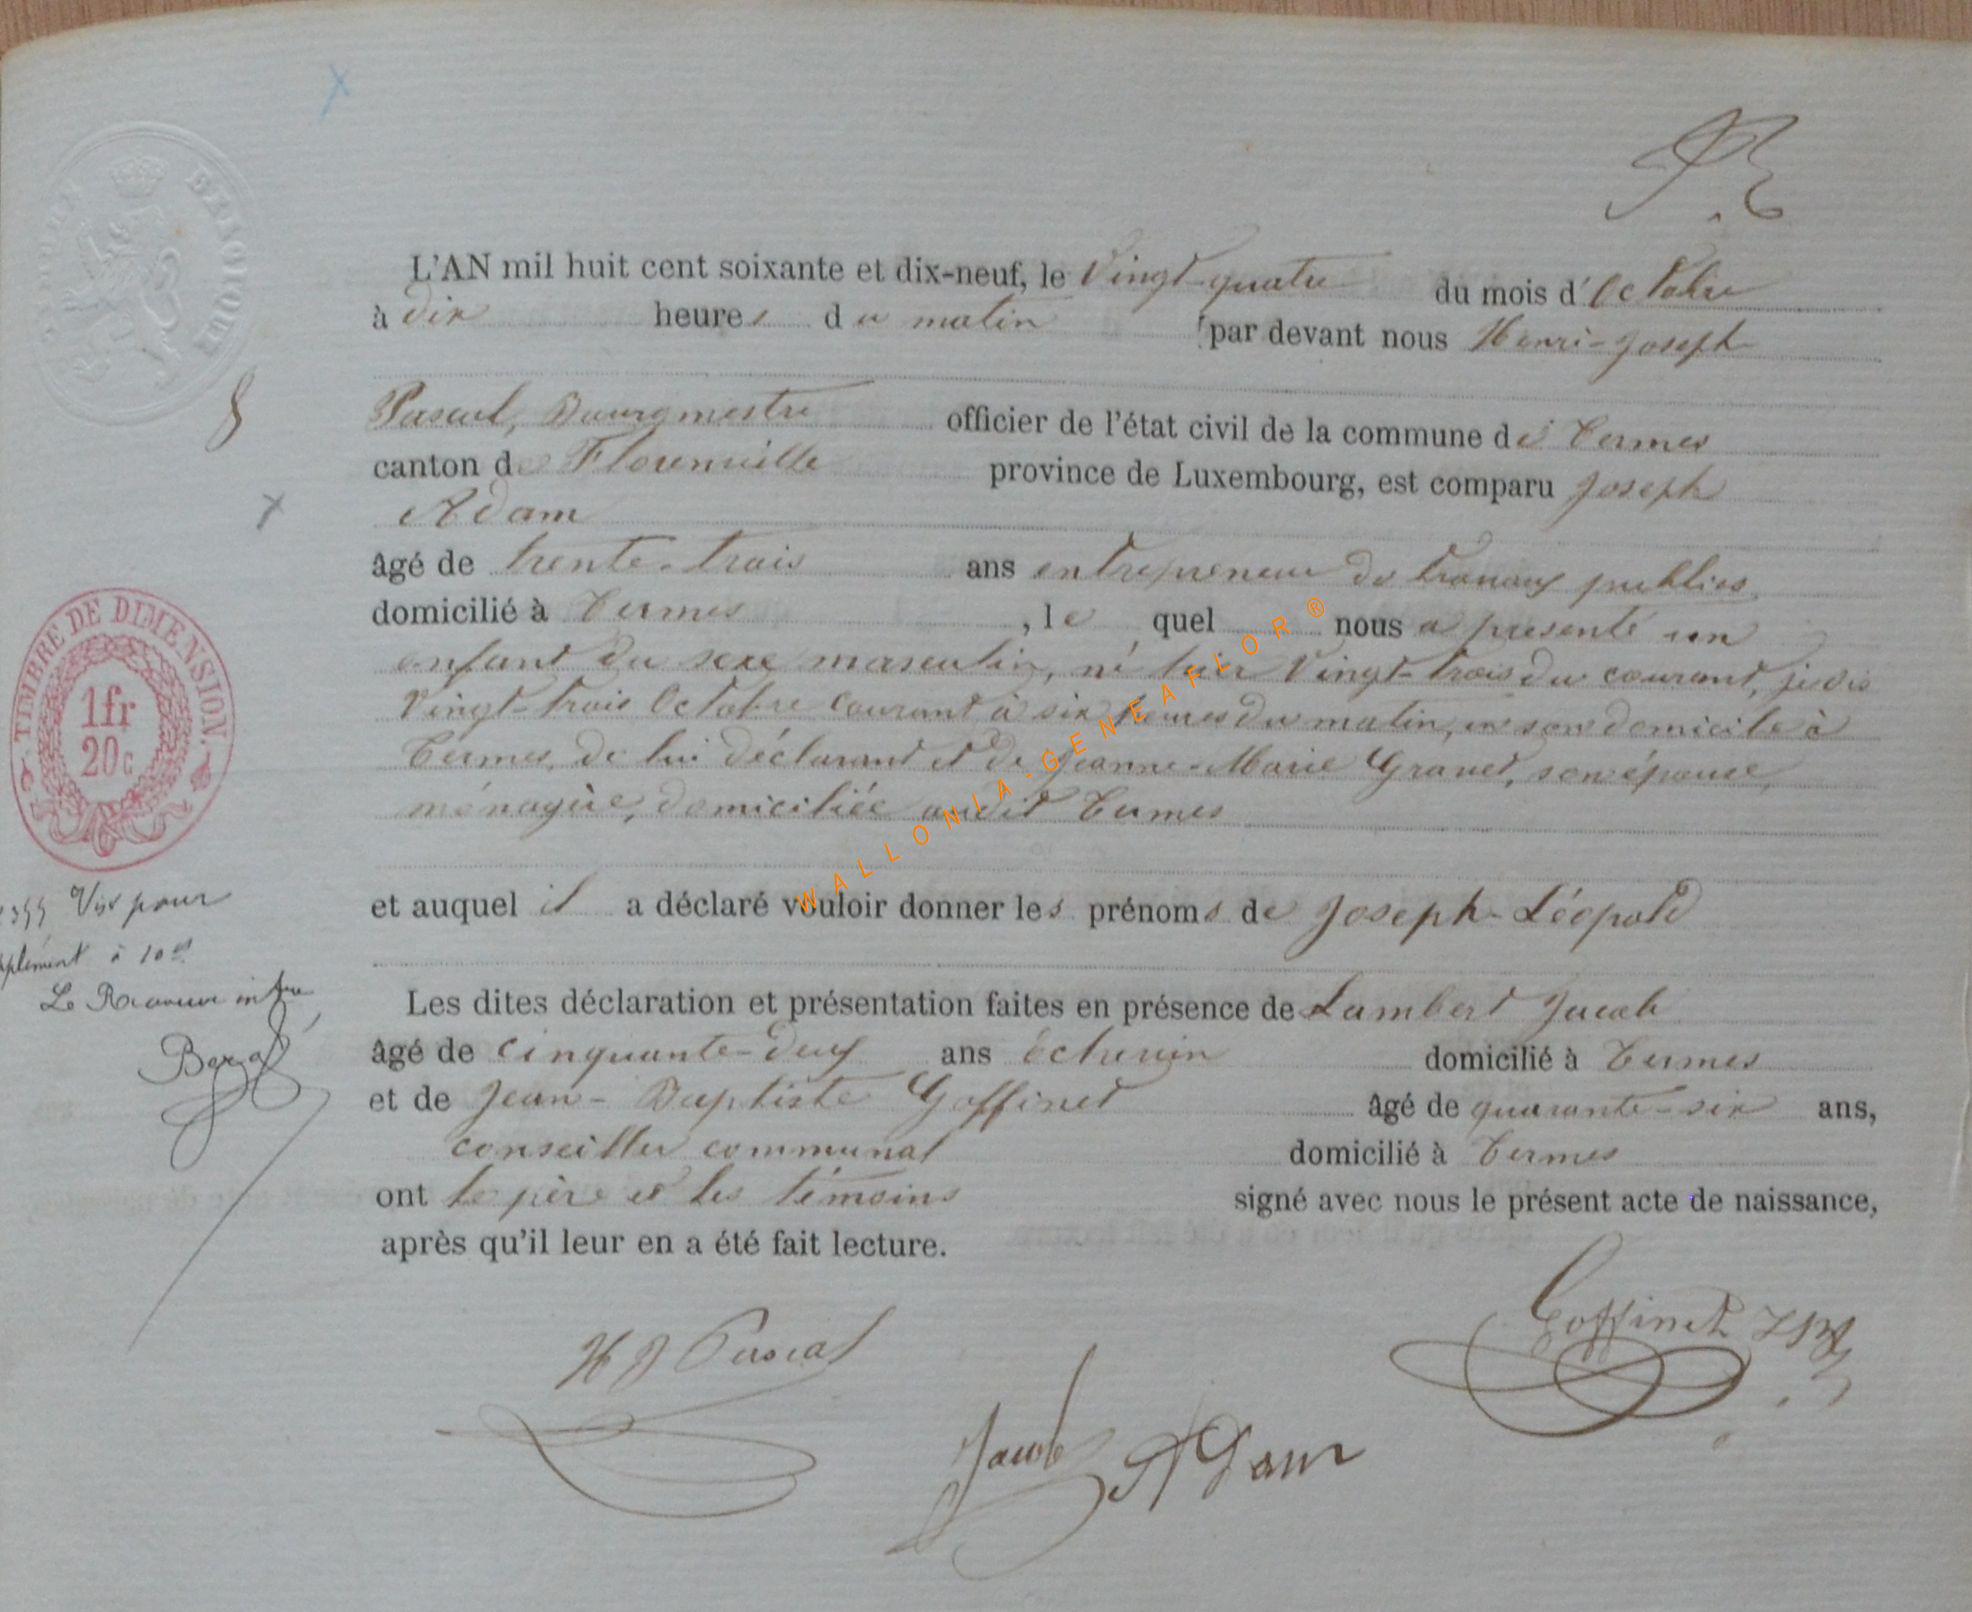 L'AN mil huit cent soixante et dix-neuf, le Vingt-quatre du mois d'Octobre
à dix heures du matin par devant nous Henri-Joseph
Pascal, Bourgmestre officier de l'état civil de la commune de Termes
canton de Florenville province de Luxembourg, est comparu Joseph
Adam
âgé de trente-trois ans entrepreneur de travaux publics
domicilié à Termes, lequel nous a présenté un
enfant du sexe masculin, né hier Vingt-trois du courant, je dis
Vingt-trois Octobre courant à six heures du matin, en son domicile à
Termes, de lui déclarant et de Jeanne-Marie Gravet, son épouse,
ménagère, domiciliée audit Termes
et auquel il a déclaré vouloir donner les prénoms de Joseph-Léopold
Les dites déclaration et présentation faites en présence de Lambert Jacob
âgé de cinquante-deux ans échevin domicilié à Termes
et de Jean-Baptiste Goffinet âgé de quarante-six ans,
conseiller communal domicilié à Termes
ont le père et les témoins signé avec nous le présent acte de naissance,
après qu'il leur en a été fait lecture.
H J Pascal
Jacob
Adam
Goffinet J B
8
TIMBRE DE DIMENSION.
1fr
20c
Vise pour
à 10 cs
Le Receveur
BELGIQUE
WALLONIA-GENEAFLOR®